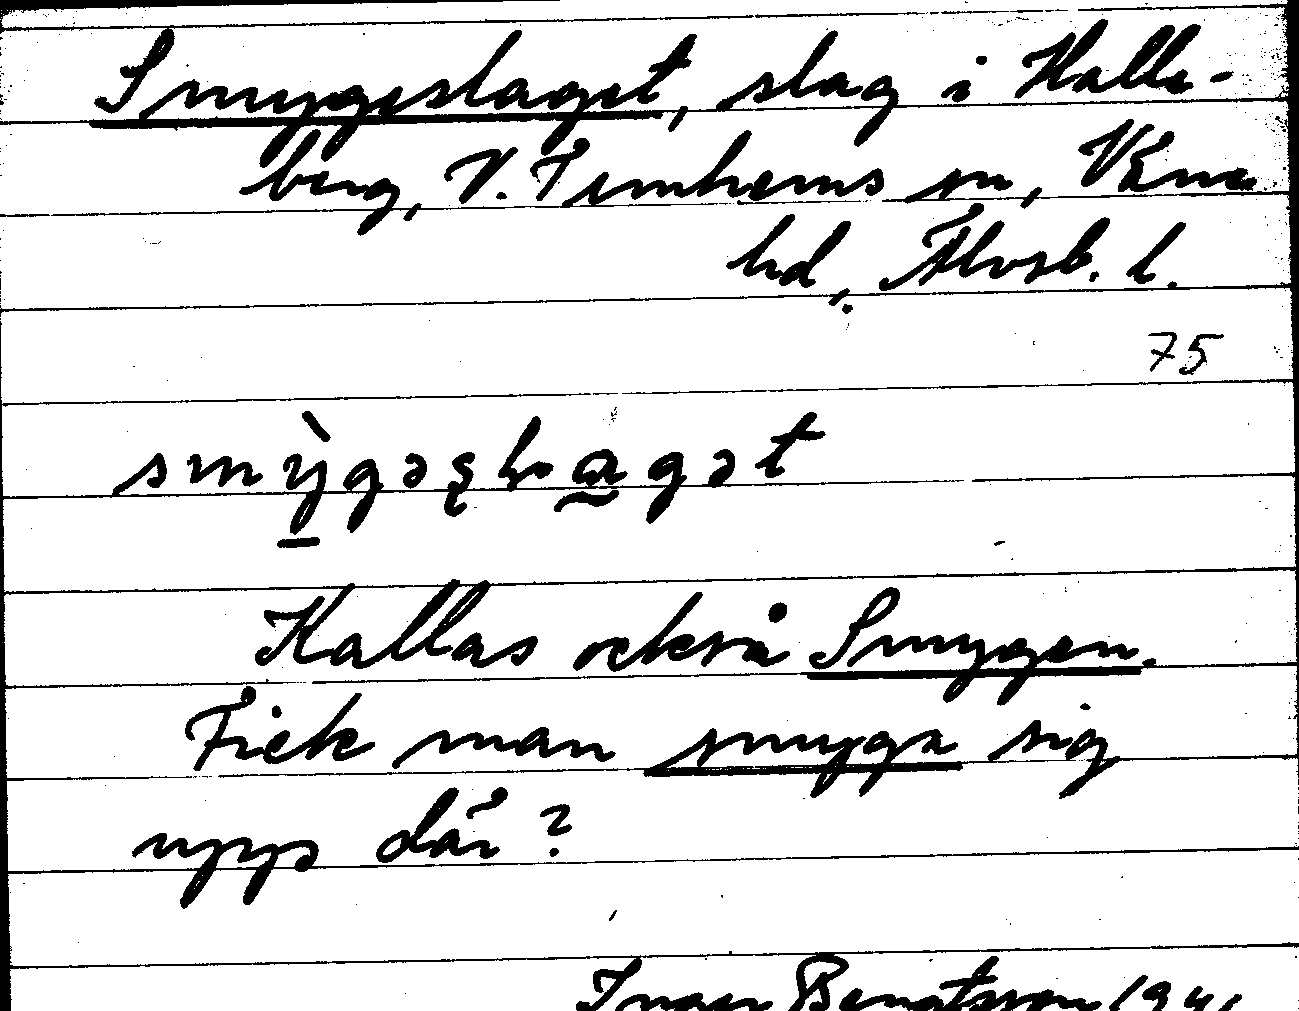 Smygeslaget, slag i Halle-
berg, V. Tunhems sn, Väne
hd, Älvsb. l.
75
smỳgəʂlagət
Kallas också Smygen.
Fick man smyga sig
upp där?
Inger Bengtsson 1941